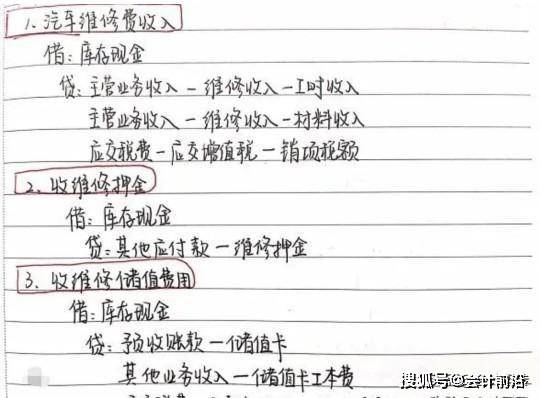 1、汽车维修费收入
借：库存现金
贷：主营业务收入－维修收入－工时收入
主营业务收入－维修收入－材料收入
应交税费－应交增值税－销项税额
2、收维修押金
借：库存现金
贷：其他应付款－维修押金
3、收维修储值费用
借：库存现金
贷：预收账款－储值卡
其他业务收入－储值卡工本费
搜狐号@会计前沿